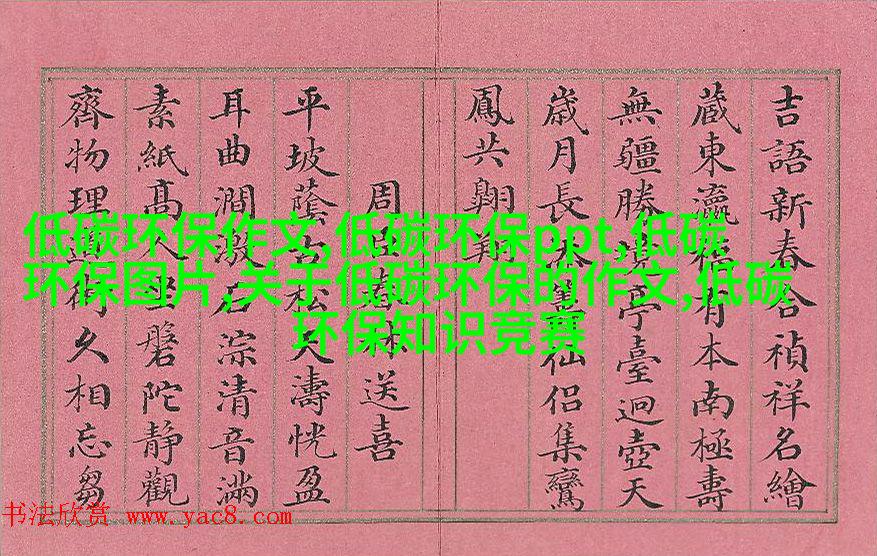 吉語新春合禎祥名繪
藏東瀛有本南極壽
無疆勝亭臺迥壺天
歲月長仙侶集鸞
鳳共翱翔
周送喜
平坡蔭濤恍盈
耳曲澗石淙清音滿
素紙高人坐磐陀靜觀
齊物理久相忘芻
低碳环保作文,低碳环保ppt,低碳
环保图片,关于低碳环保的作文,低碳
环保知识竞赛
书法欣赏 www.yac8.com